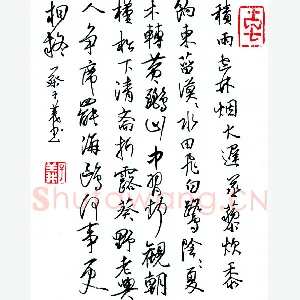 積雨空林烟火遲蒸藜炊黍
餉東菑漠々水田飛白鷺陰々夏
木轉黄鸝山中習静觀朝
槿松下清齋折露葵野老與
人争席罷海鷗何事更
相疑 書
Shufawang.CN